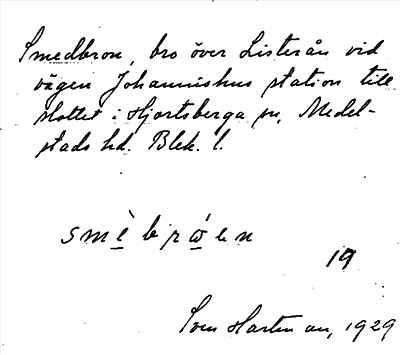 Smedbron, bro över Listerån vid
vägen Johannishus station till
slottet i Hjortsberga sn, Medel-
stads hd. Blek. l.
smè brώen
19
Sven Hartman, 1929